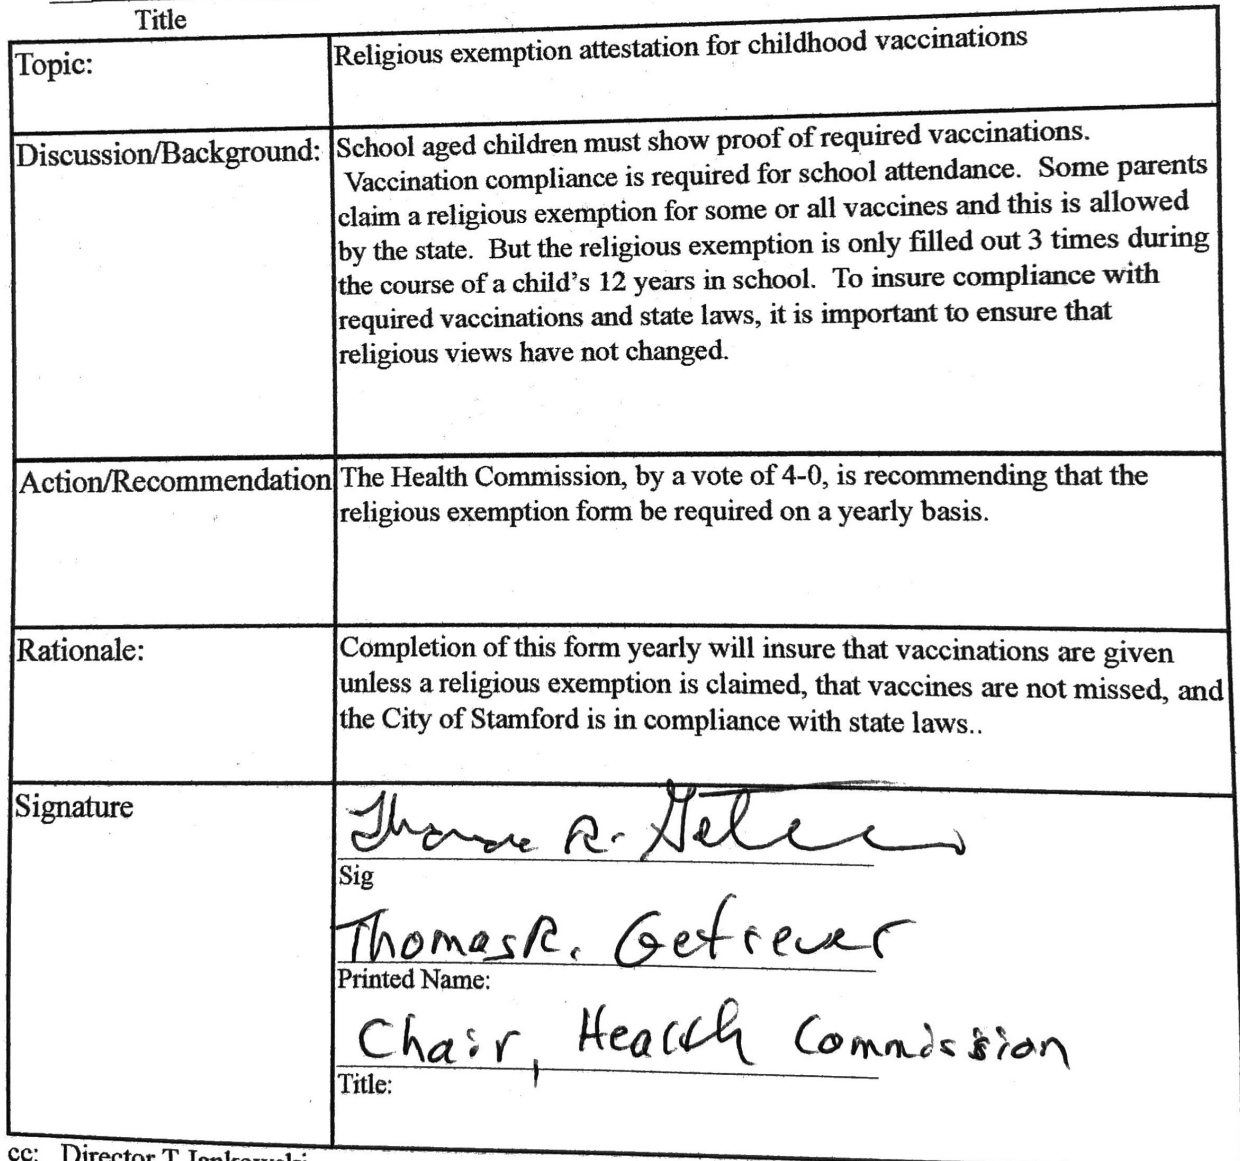 Title
Topic:
Religious exemption attestation for childhood vaccinations
Discussion/Background:
School aged children must show proof of required vaccinations.
Vaccination compliance is required for school attendance. Some parents
claim a religious exemption for some or all vaccines and this is allowed
by the state. But the religious exemption is only filled out 3 times during
the course of a child's 12 years in school. To insure compliance with
required vaccinations and state laws, it is important to ensure that
religious views have not changed.
Action/Recommendation
The Health Commission, by a vote of 4-0, is recommending that the
religious exemption form be required on a yearly basis.
Rationale:
Completion of this form yearly will insure that vaccinations are given
unless a religious exemption is claimed, that vaccines are not missed, and
the City of Stamford is in compliance with state laws..
Signature
Sig
Thomas R.
Printed Name:
Chair, Health Commission
Title:
cc: Director T